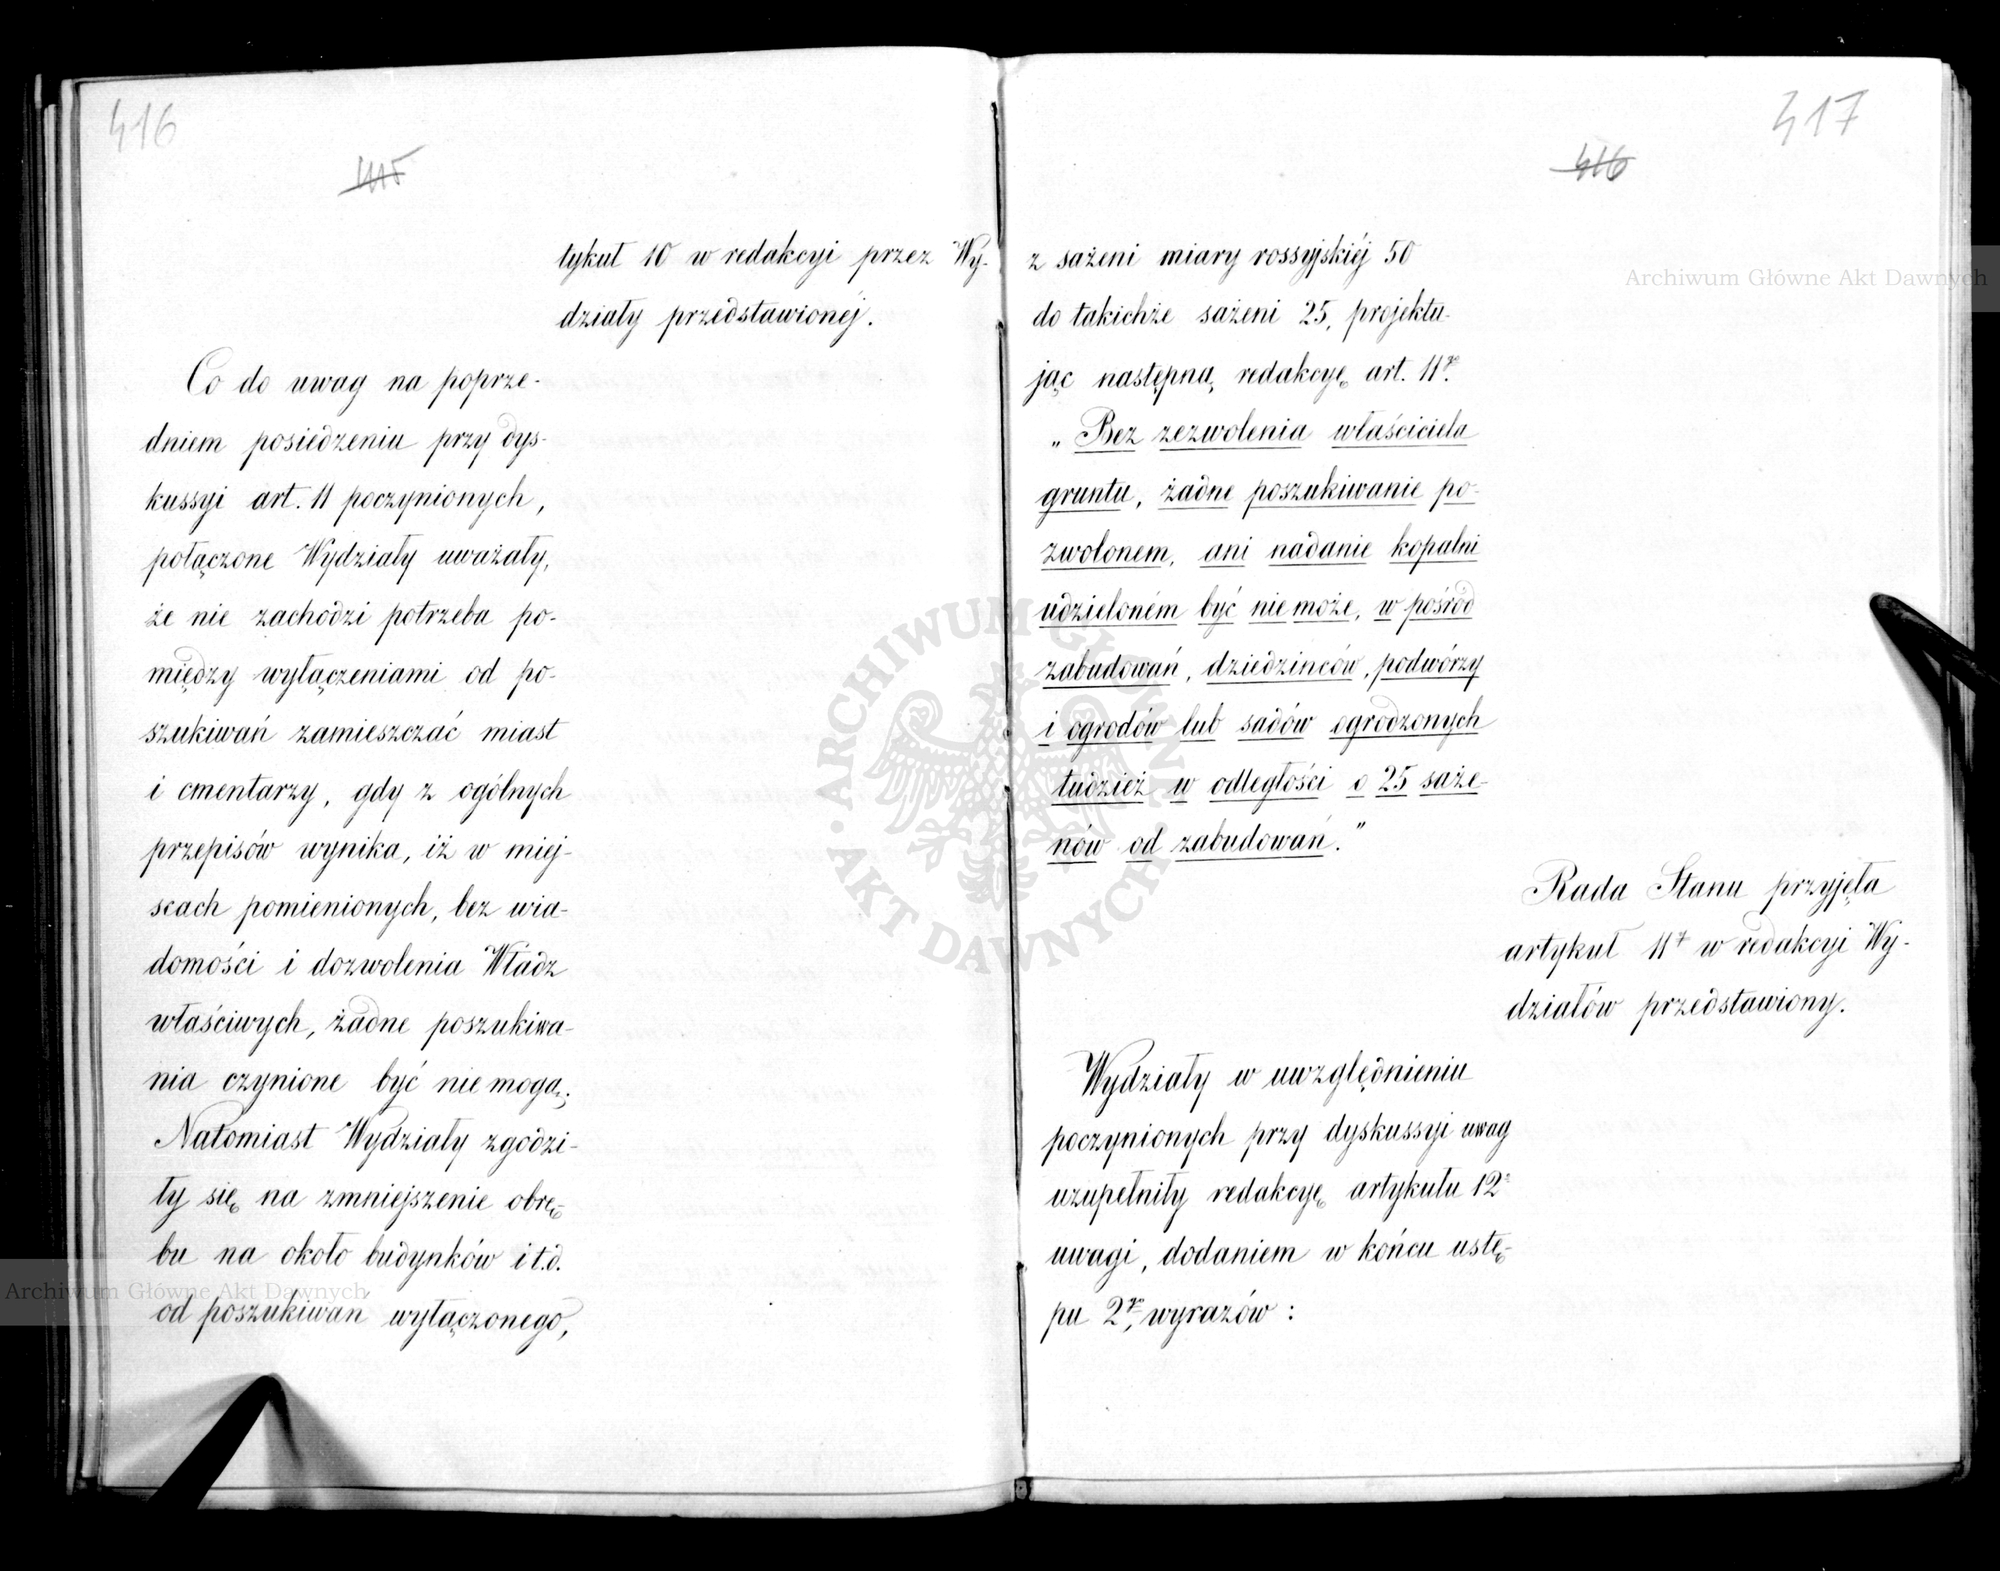 416
415
tykuł 10 w redakcyi przez Wy-
działy przedstawionéj.
Co do uwag na poprze-
dniem posiedzeniu przy dys-
kussyi art. 11 poczynionych,
połączone Wydziały uważały,
że nie zachodzi potrzeba po-
między wyłączeniami od po-
szukiwań zamieszczać miast
i cmentarzy, gdy z ogólnych
przepisów wynika, iż w miej-
scach pomienionych, bez wia-
domości i dozwolenia Władz
właściwych, żadne poszukiwa-
nia czynione być nie mogą.
Natomiast Wydziały zgodzi-
ły się na zmniejszenie obrę-
bu na około budynków i t.d.
od poszukiwań wyłączonego,
417
416
z sażeni miary rossyjskiéj 50
do takichże sażeni 25, projektu-
jąc następną redakcyę art. 11go.
„Bez zezwolenia właściciela
gruntu, żadne poszukiwanie po-
zwolonem, ani nadanie kopalni
udzieloném być nie może, w pośród
zabudowań, dziedzińców, podwórzy
i ogrodów lub sadów ogrodzonych
tudzież w odległości o 25 saże-
nów od zabudowań."
Rada Stanu przyjęła
artykuł 11ty w redakcyi Wy-
działów przedstawiony.
Wydziały w uwzględnieniu
poczynionych przy dyskussyi uwag
uzupełniły redakcyę artykułu 12
uwagi, dodaniem w końcu ustę-
pu 2go, wyrazów:
Archiwum Główne Akt Dawnych
Archiwum Główne Akt Dawnych
ARCHIWUM GŁÓWNE AKT DAWNYCH